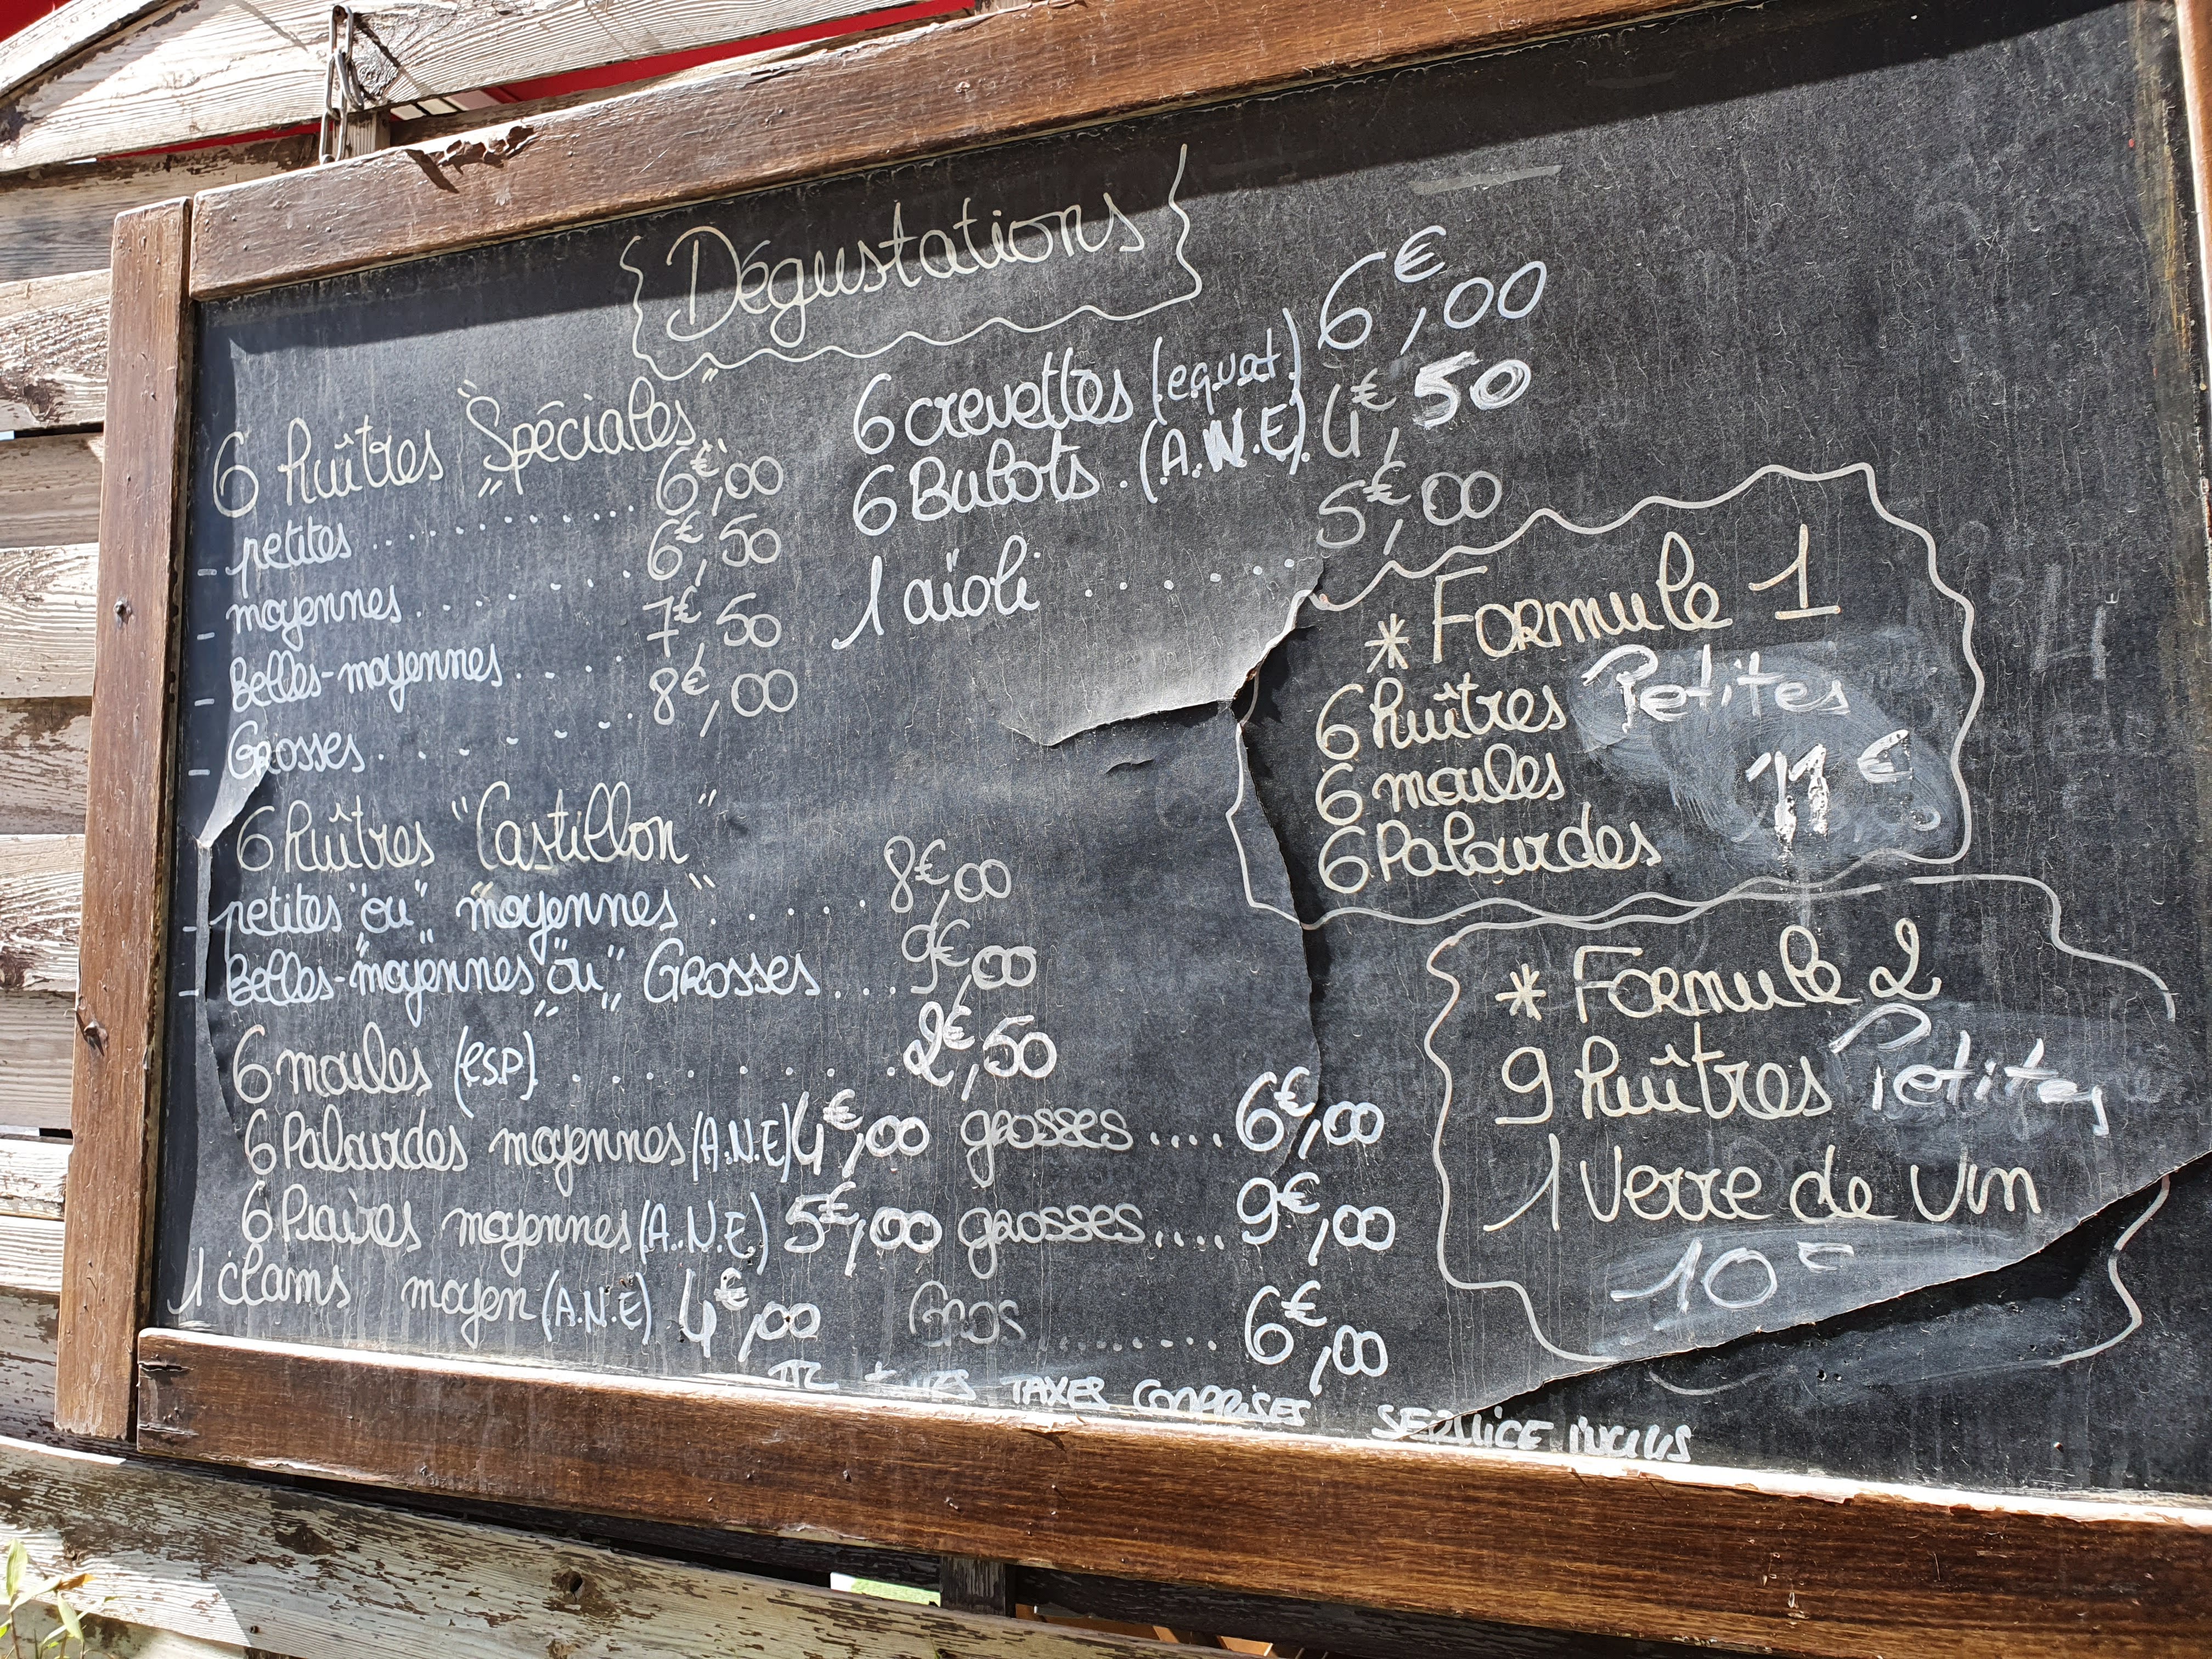 Dégustations
6 huîtres "Spéciales"
- petites ............... 6€,00
- moyennes ........ 6€,50
- Belles-moyennes ..... 7€,50
- Grosses ......... 8€,00
6 huîtres "Castillon"
- petites "ou" "moyennes" ...... 8€,00
- Belles-"moyennes" "ou" Grosses .... 9€,00
6 moules (esp) ............ 2€,50
6 Palourdes moyennes (A.N.E) 4€,00 grosses .... 6€,00
6 Praires moyennes (A.N.E.) 5€,00 grosses .... 9€,00
1 clams moyen (A.N.E) 4€,00 Gros ........ 6€,00
TTC TAXES COMPRISES SERVICE INCLUS
6 crevettes (equat.) 6€,00
6 Bulots. (A.N.E). 4€,50
1 aïoli ........ 5€,00
* Formule 1
6 huîtres Petites
6 moules 11€
6 Palourdes
* Formule 2
9 huîtres Petites
1 Verre de Vin
10€